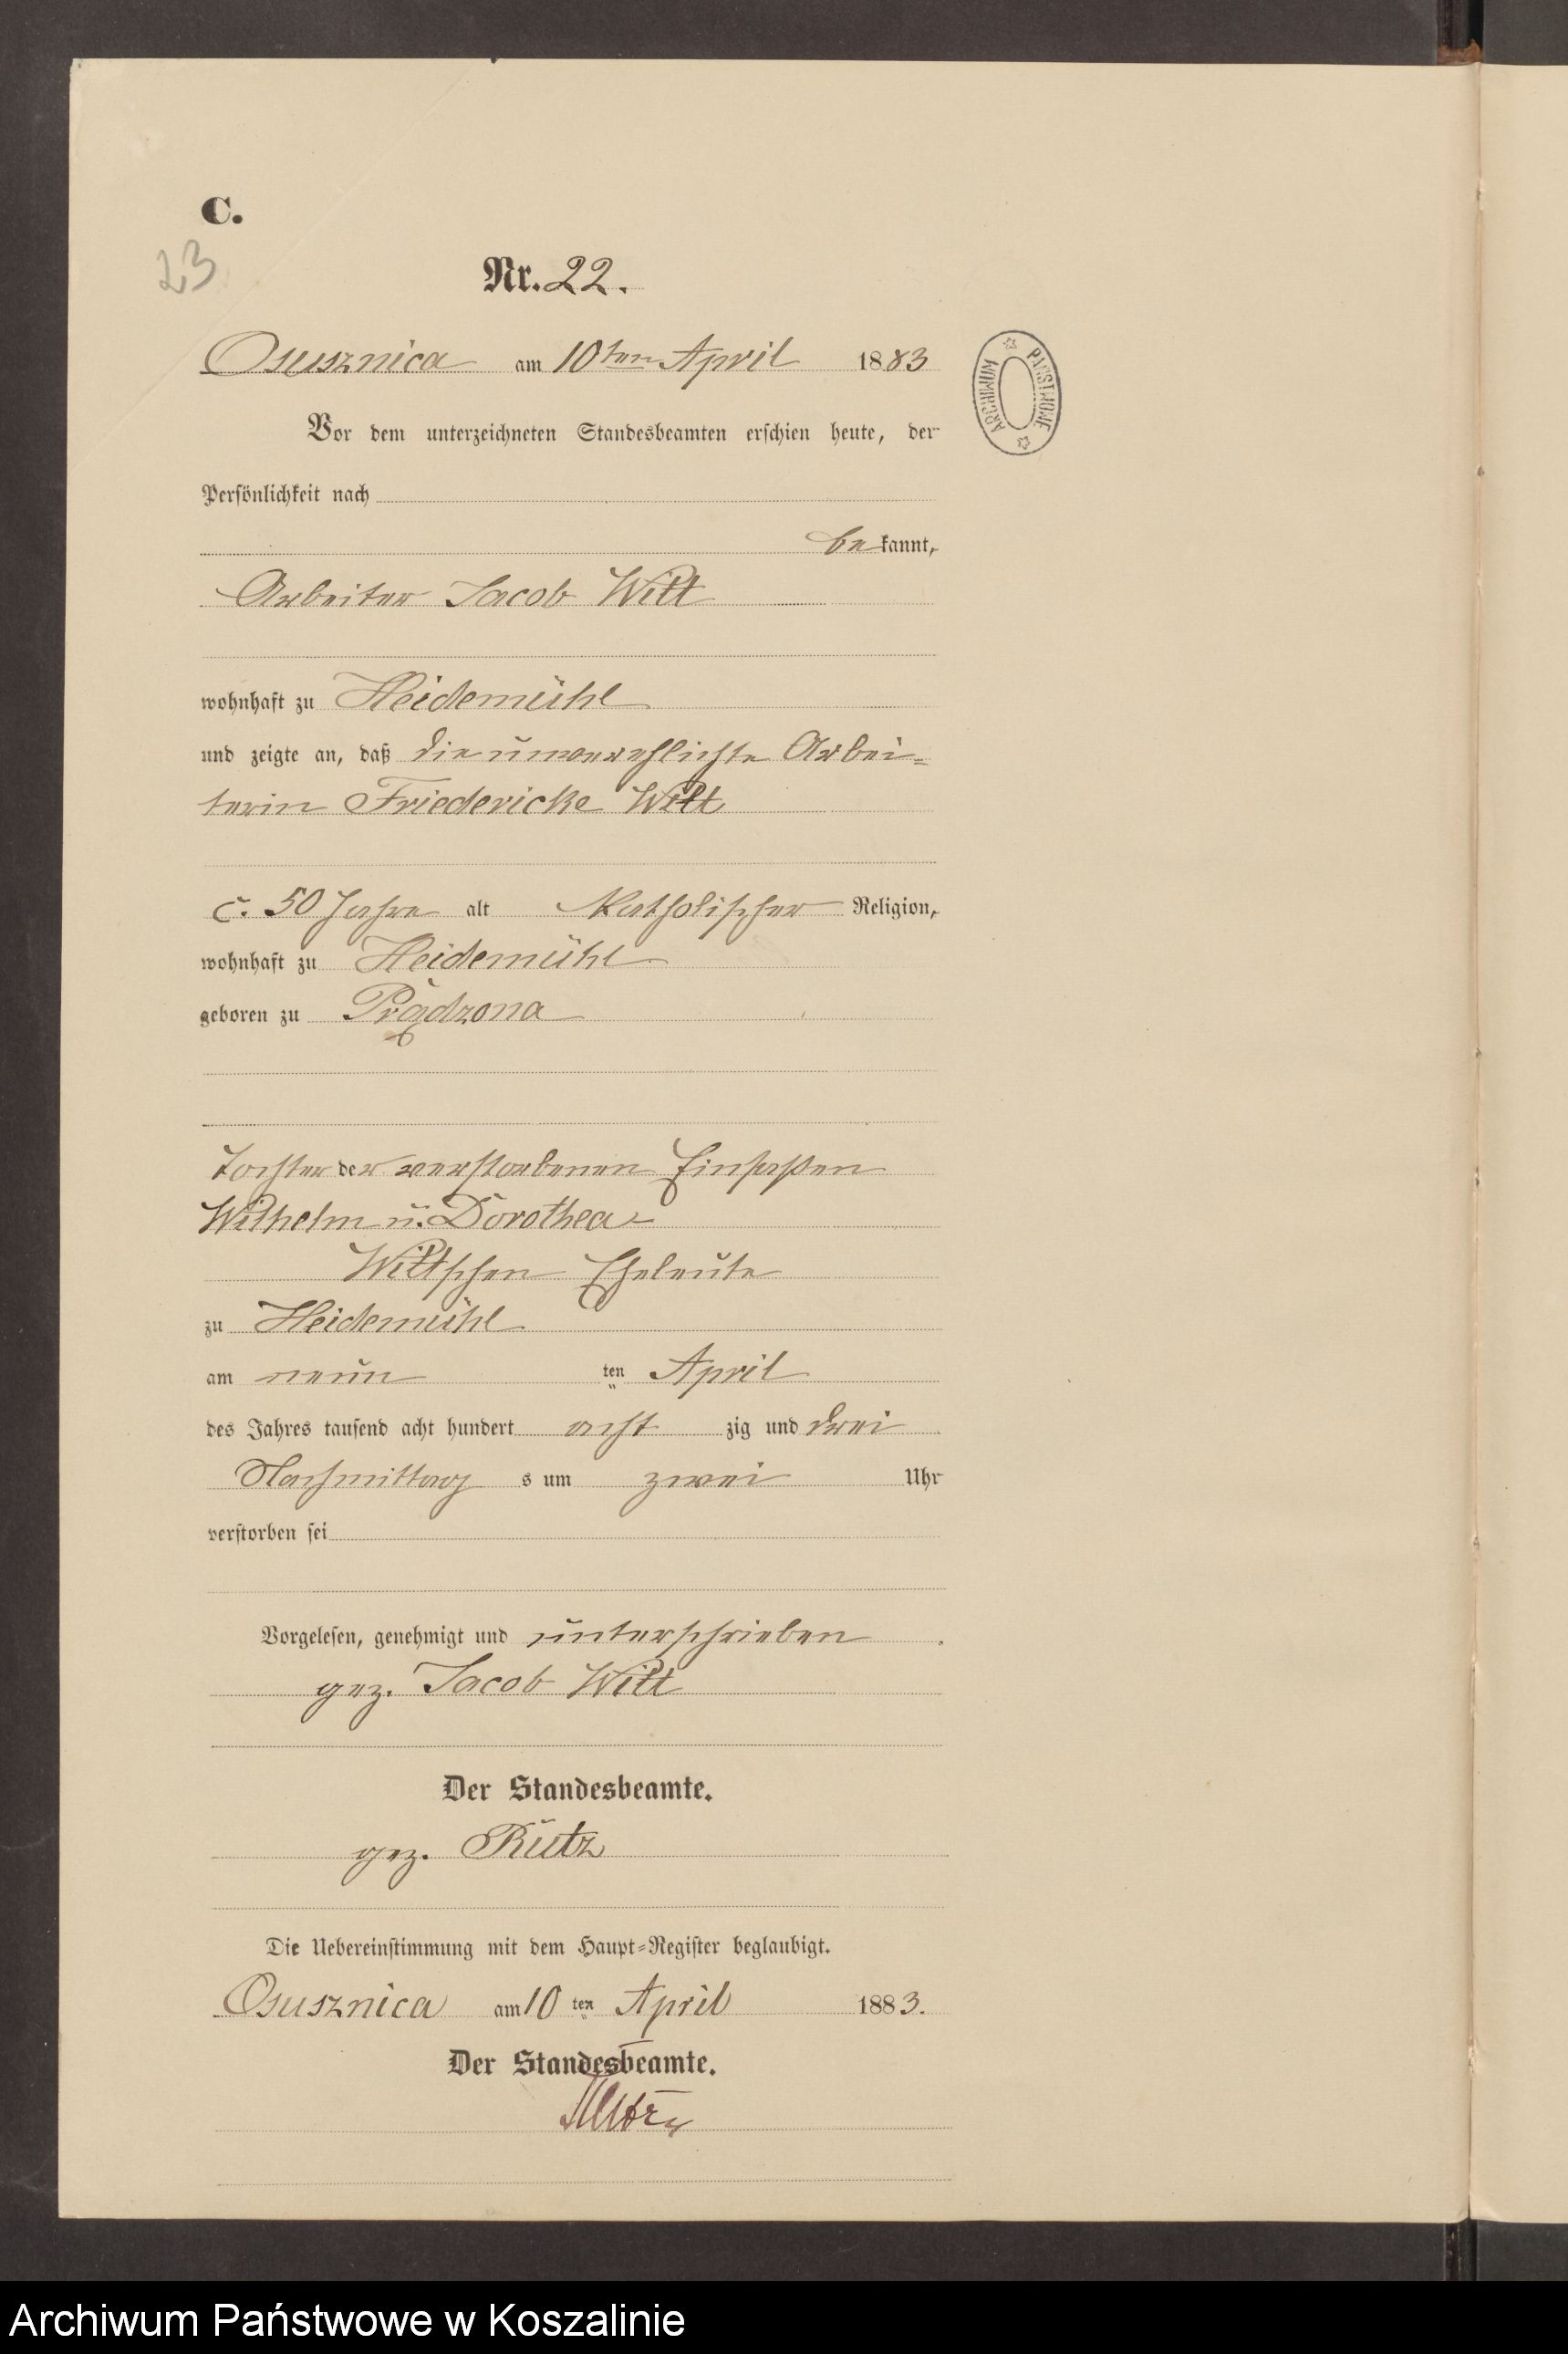 C.
23
Nr. 22.
Osusznica am 10ten April 1883
ARCHIWUM PAŃSTWOWE
Vor dem unterzeichneten Standesbeamten erschien heute, der
Persönlichkeit nach
be kannt,
Arbeiter Jacob Witt
wohnhaft zu Heidemühl
und zeigte an, daß die unverehlichte Arbei=
terin Friedericke Witt
c. 50 Jahre alt Katholischer Religion,
wohnhaft zu Heidemühl
geboren zu Prądzona
Tochter der verstorbenen Einsaßen
Wilhelm u. Dorothea
Wittschen Eheleute
zu Heidemühl
am neun ten April
des Jahres tausend acht hundert acht zig und drei
Nachmittag s um zwei Uhr
verstorben sei
Vorgelesen, genehmigt und unterschrieben.
gez. Jacob Witt
Der Standesbeamte.
gez. Rutz
Die Uebereinstimmung mit dem Haupt=Register beglaubigt.
Osusznica am 10 ten April 1883.
Der Standesbeamte.
Rutz
Archiwum Państwowe w Koszalinie